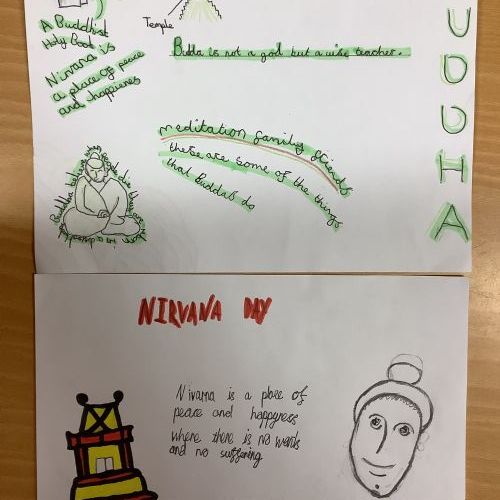 A Buddhist
Holy Book
Nirvana is
a place of peace
and happiness
Temple
Budda is not a god but a wise teacher.
meditation family friends
these are some of the things
that Buddas do
Buddha believe when
U
D
D
H
A
NIRVANA DAY
Nivarna is a place of
peace and happyness
where there is no wants
and no suffering